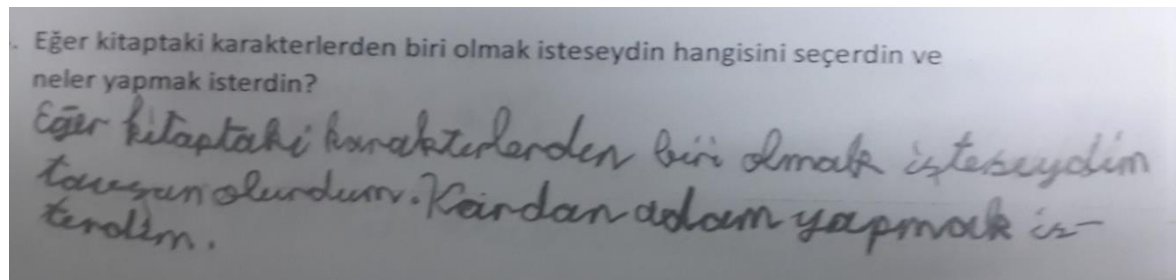 . Eğer kitaptaki karakterlerden biri olmak isteseydin hangisini seçerdin ve
neler yapmak isterdin?
Eğer kitaptaki karakterlerden biri olmak isteseydim
tavşan olurdum. Kardan adam yapmak is-
terdim.